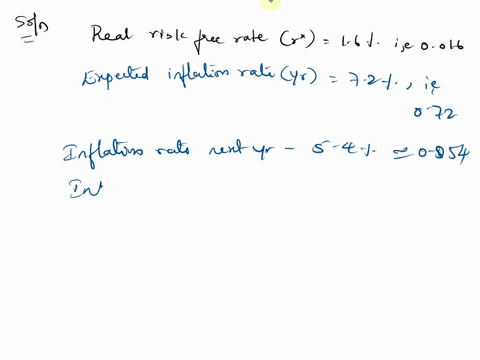 Soln
Real risk free rate (r*) = 1.6%. i,e 0.016
Expected inflation rate (yr) = 7.2%., ie
0.72
Inflation rate next yr - 5.4%. ≈ 0.054
Int